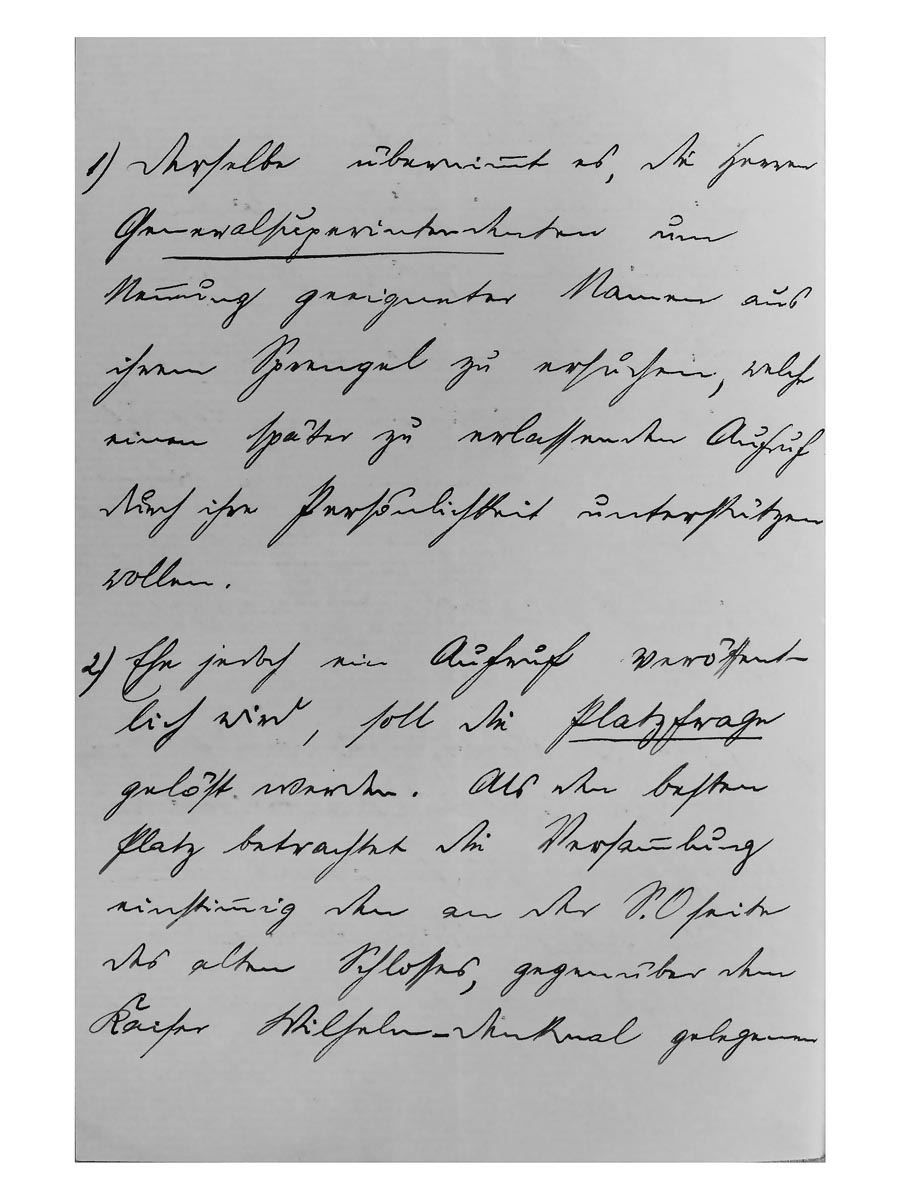 1) Derselbe übernim̅t es, die Herren
Generalsuperintendenten um
Nen̅ung geeigneter Namen aus
ihrem Sprengel zu ersuchen, welche
einen später zu erlassenden Aufruf
durch ihre Persönlichkeit unterstützen
wollen.
2) Ehe jedoch ein Aufruf veröffent-
lich wird, soll die Platzfrage
gelöst werden. Als den besten
Platz betrachtet die Versam̅lung
einstim̅ig den an der S.O seite
des alten Schlosses, gegenüber dem
Kaiser Wilhelm-Denkmal gelegenen